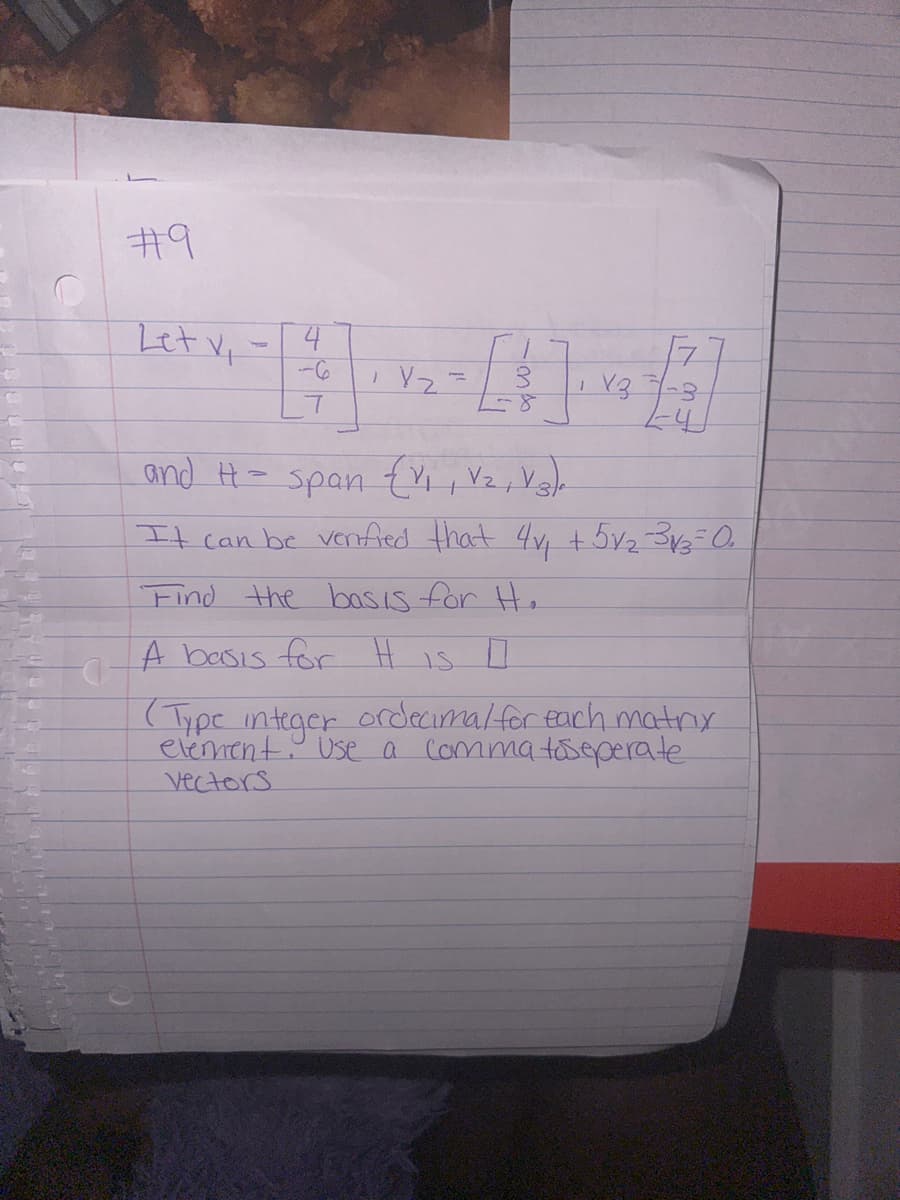 #9
Let v₁ = [4 -6 7], v₂ = [1 3 -8], v₃ = [7 -3 -4]
and H = span {v₁, v₂, v₃}.
It can be verified that 4v₁ + 5v₂ - 3v₃ = 0.
Find the basis for H.
A basis for H is □
(Type integer or decimal for each matrix
element. Use a comma to seperate
vectors